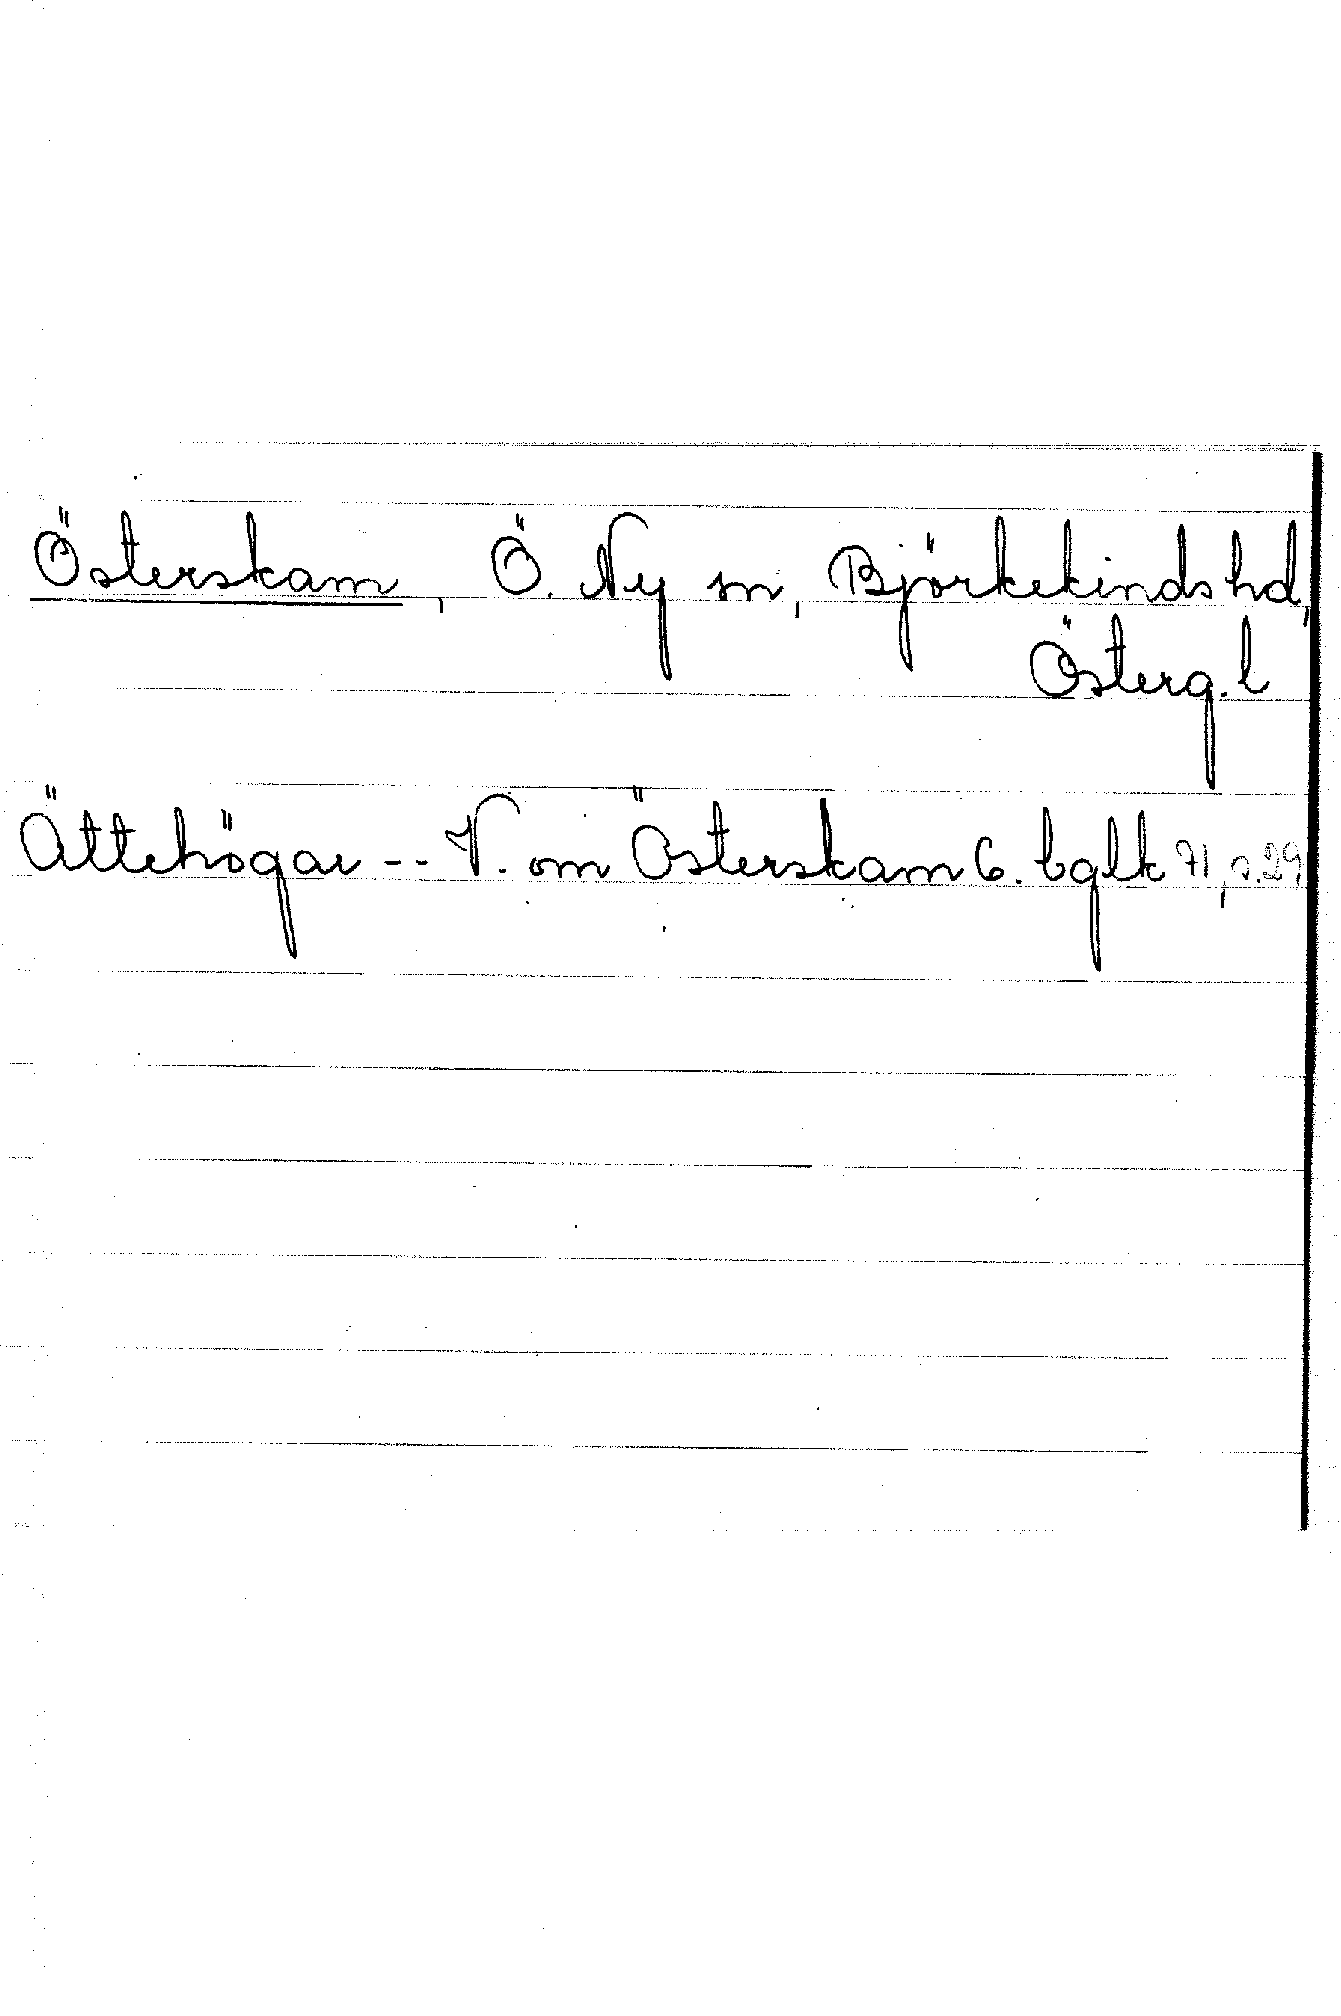 Österskam, Ö. Ny sn, Björkekinds hd,
Österg. l
Ättehögar -- V. om Österskam 6. bglk 71, s. 29,